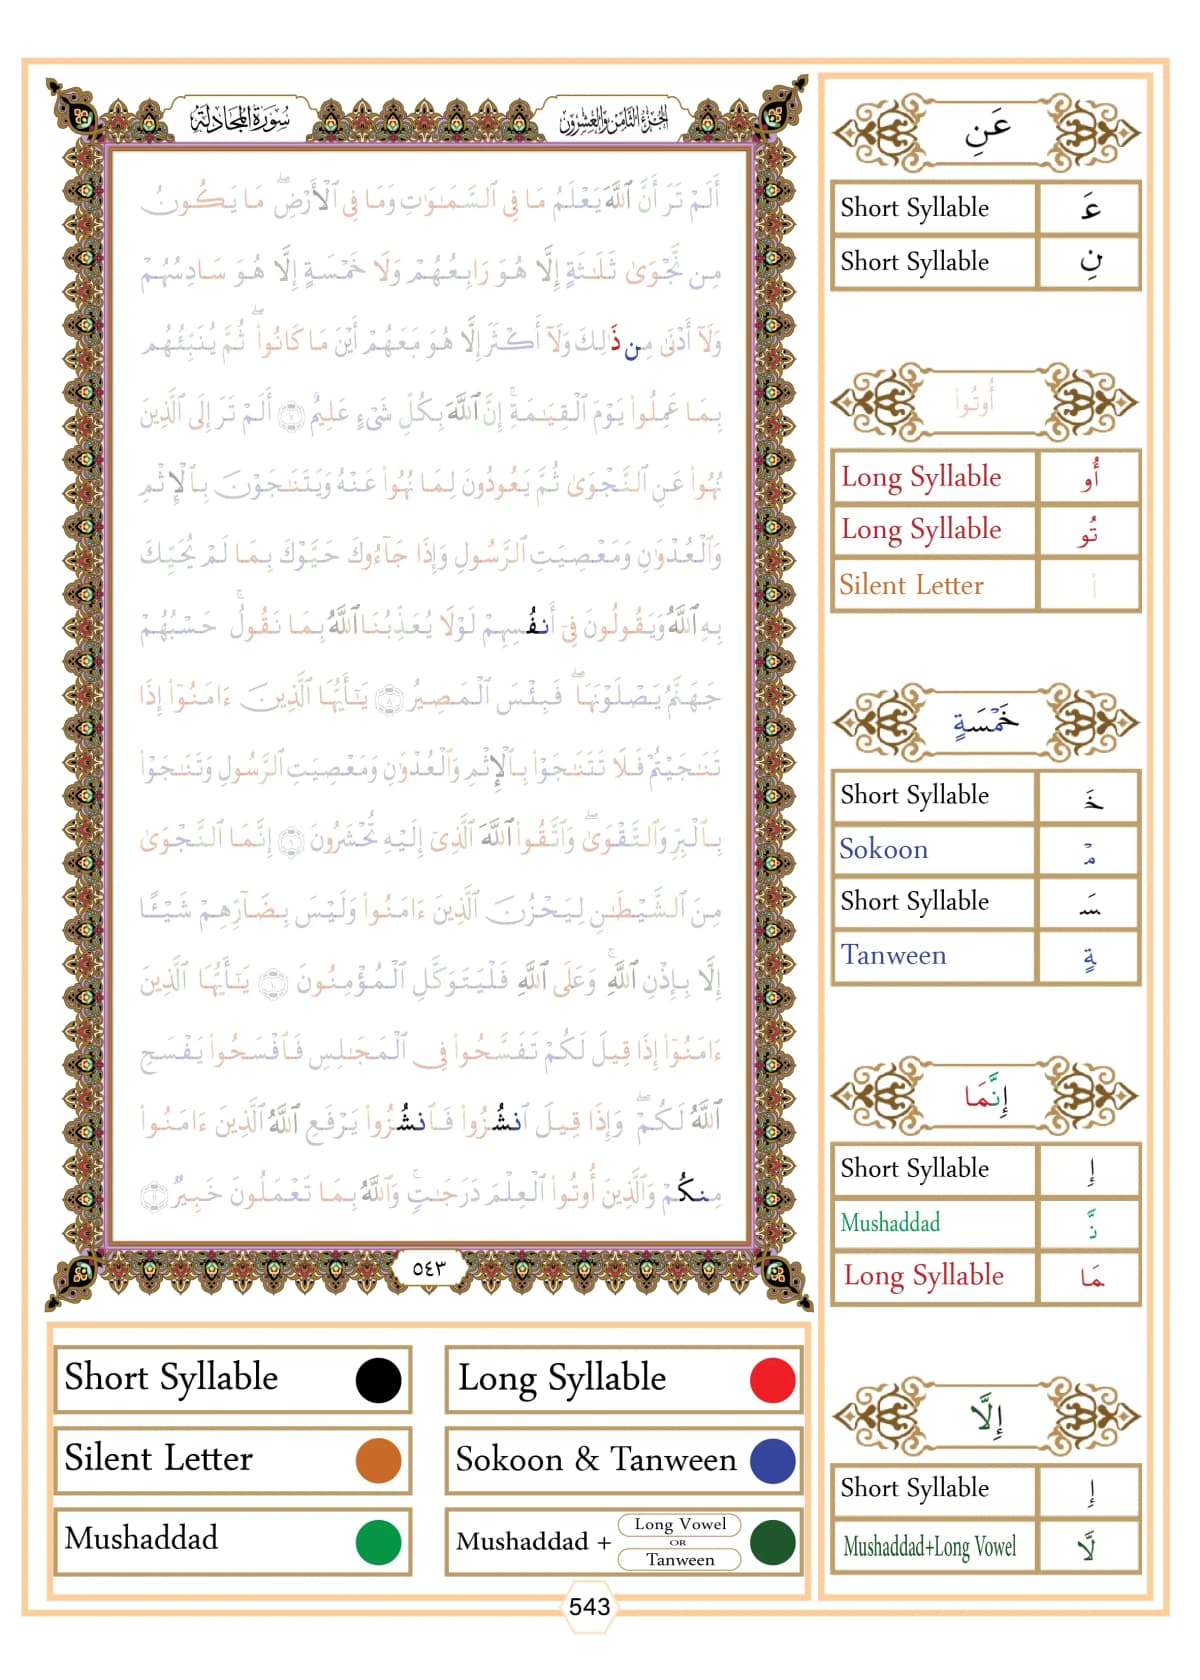 سُورَةُ المُجَادلَة
الجُزءُ الثَّامِنُ وَالعِشْرُون
أَلَمْ تَرَ أَنَّ ٱللَّهَ يَعْلَمُ مَا فِى ٱلسَّمَـٰوَٰتِ وَمَا فِى ٱلْأَرْضِ ۖ مَا يَكُونُ
مِن نَّجْوَىٰ ثَلَـٰثَةٍ إِلَّا هُوَ رَابِعُهُمْ وَلَا خَمْسَةٍ إِلَّا هُوَ سَادِسُهُمْ
وَلَآ أَدْنَىٰ مِن ذَٰلِكَ وَلَآ أَكْثَرَ إِلَّا هُوَ مَعَهُمْ أَيْنَ مَا كَانُوا۟ ۖ ثُمَّ يُنَبِّئُهُم
بِمَا عَمِلُوا۟ يَوْمَ ٱلْقِيَـٰمَةِ ۚ إِنَّ ٱللَّهَ بِكُلِّ شَىْءٍ عَلِيمٌ ٧ أَلَمْ تَرَ إِلَى ٱلَّذِينَ
نُهُوا۟ عَنِ ٱلنَّجْوَىٰ ثُمَّ يَعُودُونَ لِمَا نُهُوا۟ عَنْهُ وَيَتَنَـٰجَوْنَ بِٱلْإِثْمِ
وَٱلْعُدْوَٰنِ وَمَعْصِيَتِ ٱلرَّسُولِ وَإِذَا جَآءُوكَ حَيَّوْكَ بِمَا لَمْ يُحَيِّكَ
بِهِ ٱللَّهُ وَيَقُولُونَ فِىٓ أَنفُسِهِمْ لَوْلَا يُعَذِّبُنَا ٱللَّهُ بِمَا نَقُولُ ۚ حَسْبُهُمْ
جَهَنَّمُ يَصْلَوْنَهَا ۖ فَبِئْسَ ٱلْمَصِيرُ ٨ يَـٰٓأَيُّهَا ٱلَّذِينَ ءَامَنُوٓا۟ إِذَا
تَنَـٰجَيْتُمْ فَلَا تَتَنَـٰجَوْا۟ بِٱلْإِثْمِ وَٱلْعُدْوَٰنِ وَمَعْصِيَتِ ٱلرَّسُولِ وَتَنَـٰجَوْا۟
بِٱلْبِرِّ وَٱلتَّقْوَىٰ ۖ وَٱتَّقُوا۟ ٱللَّهَ ٱلَّذِىٓ إِلَيْهِ تُحْشَرُونَ ٩ إِنَّمَا ٱلنَّجْوَىٰ
مِنَ ٱلشَّيْطَـٰنِ لِيَحْزُنَ ٱلَّذِينَ ءَامَنُوا۟ وَلَيْسَ بِضَآرِّهِمْ شَيْـًٔا
إِلَّا بِإِذْنِ ٱللَّهِ ۚ وَعَلَى ٱللَّهِ فَلْيَتَوَكَّلِ ٱلْمُؤْمِنُونَ ١٠ يَـٰٓأَيُّهَا ٱلَّذِينَ
ءَامَنُوٓا۟ إِذَا قِيلَ لَكُمْ تَفَسَّحُوا۟ فِى ٱلْمَجَـٰلِسِ فَٱفْسَحُوا۟ يَفْسَحِ
ٱللَّهُ لَكُمْ ۖ وَإِذَا قِيلَ ٱنشُزُوا۟ فَٱنشُزُوا۟ يَرْفَعِ ٱللَّهُ ٱلَّذِينَ ءَامَنُوا۟
مِنكُمْ وَٱلَّذِينَ أُوتُوا۟ ٱلْعِلْمَ دَرَجَـٰتٍ ۚ وَٱللَّهُ بِمَا تَعْمَلُونَ خَبِيرٌ ١١
٥٤٣
عَنِ
Short Syllable عَ
Short Syllable نِ
أُوتُوا۟
Long Syllable أُو
Long Syllable تُو
Silent Letter ا۟
خَمْسَةٍ
Short Syllable خَ
Sokoon مْ
Short Syllable سَ
Tanween ةٍ
إِنَّمَا
Short Syllable إِ
Mushaddad نَّ
Long Syllable مَا
إِلَّا
Short Syllable إِ
Mushaddad+Long Vowel لَّا
Short Syllable
Long Syllable
Silent Letter
Sokoon & Tanween
Mushaddad
Mushaddad + Long Vowel OR Tanween
543